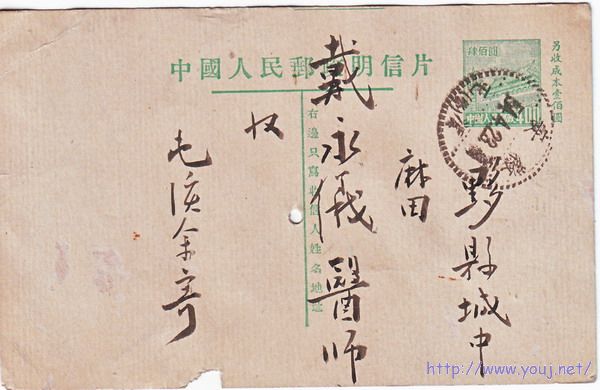 中國人民郵政明信片
肆佰圓
中国人民邮政 400
另收成本壹佰圓
右邊只寫收信人姓名地址
黟縣城中
麻田
戴永儀醫师
收
屯溪余寄
http://www.youj.net/